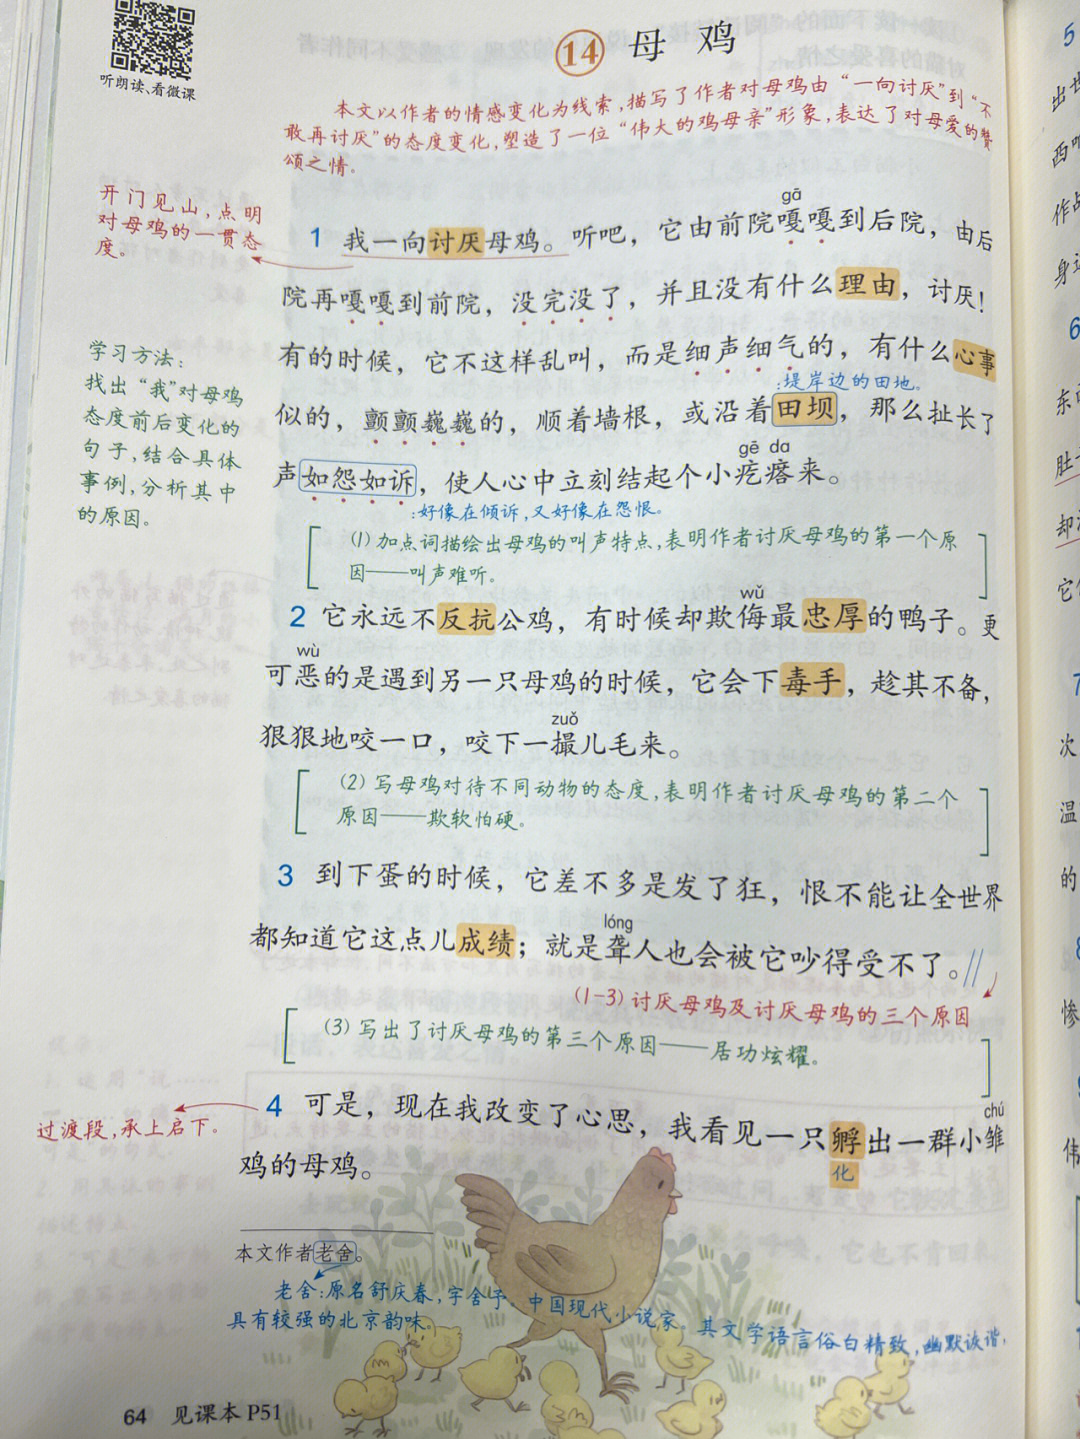 听朗读、看微课
14 母鸡
本文以作者的情感变化为线索,描写了作者对母鸡由“一向讨厌”到“不
敢再讨厌”的态度变化,塑造了一位“伟大的鸡母亲”形象,表达了对母爱的赞
颂之情。
开门见山,点明
对母鸡的一贯态
度。
gā
1 我一向讨厌母鸡。听吧,它由前院嘎嘎到后院,由后
院再嘎嘎到前院,没完没了,并且没有什么理由,讨厌!
有的时候,它不这样乱叫,而是细声细气的,有什么心事
:堤岸边的田地。
似的,颤颤巍巍的,顺着墙根,或沿着田坝,那么扯长了
gē da
声如怨如诉,使人心中立刻结起个小疙瘩来。
:好像在倾诉,又好像在怨恨。
学习方法:
找出“我”对母鸡
态度前后变化的
句子,结合具体
事例,分析其中
的原因。
(1)加点词描绘出母鸡的叫声特点,表明作者讨厌母鸡的第一个原
因——叫声难听。
wǔ
2 它永远不反抗公鸡,有时候却欺侮最忠厚的鸭子。更
wù
可恶的是遇到另一只母鸡的时候,它会下毒手,趁其不备,
zuǒ
狠狠地咬一口,咬下一撮儿毛来。
(2)写母鸡对待不同动物的态度,表明作者讨厌母鸡的第二个
原因——欺软怕硬。
3 到下蛋的时候,它差不多是发了狂,恨不能让全世界
lóng
都知道它这点儿成绩;就是聋人也会被它吵得受不了。//
(1-3)讨厌母鸡及讨厌母鸡的三个原因
(3)写出了讨厌母鸡的第三个原因——居功炫耀。
chú
4 可是,现在我改变了心思,我看见一只孵出一群小雏
化
鸡的母鸡。
过渡段,承上启下。
本文作者老舍。
老舍:原名舒庆春,字舍予。中国现代小说家。其文学语言俗白精致,幽默诙谐,
具有较强的北京韵味。
64 见课本P51
5
出世
西
作
身
6
东
肚
却
它
7
次
温
的
惨
伟